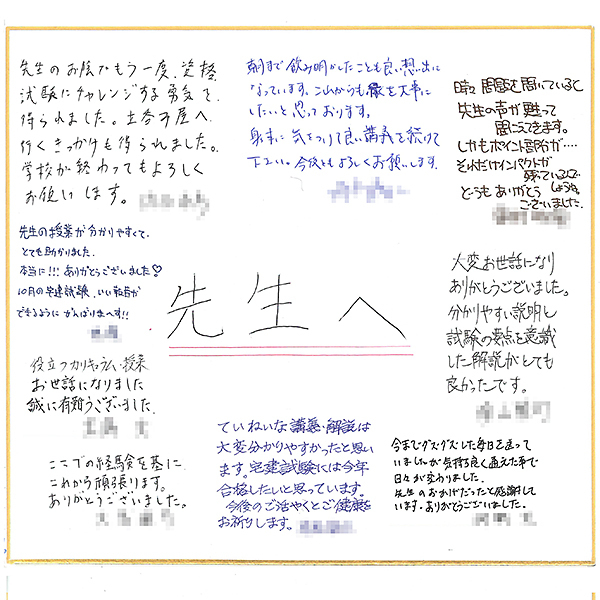 先生のお陰でもう一度、資格
試験にチャレンジする勇気を
得られました。土台お屋へ
行くきっかけも得られました。
学校が終わってもよろしく
お願いします。
朝まで飲み明かしたことも良い想い出に
なっています。これからも縁を大事に
したいと思っております。
身体に気をつけて良い講義を続けて
下さい。今後ともよろしくお願いします。
時々問題を聞いていると
先生の声が甦って
聞こえてきます。
しかもポイント部分が‥‥
それだけインパクトが
残っているので
どうもありがとう
ございました。
先生の授業が分かりやすくて、
とても助かりました
本当に!!!ありがとうございました♡
10月の宅建試験、いい報告が
できるように がんばりまーす!!
先生へ
大変お世話になり
ありがとうございました。
分かりやすい説明と
試験の要点を意識
した解説がとても
良かったです。
役立つカリキュラム、授業
お世話になりました
誠に有難うございました。
ここでの経験を基に
これから頑張ります。
ありがとうございました。
ていねいな講義・解説は
大変分かりやすかったと思い
ます。宅建試験には今年
合格したいと思っています。
今後のご活やくとご健康を
お祈りします。
今までグズグズした毎日を送って
いましたが気持ち良く通えた事で
日々が変わりました。
先生のおかげだったと感謝して
います。ありがとうございました。